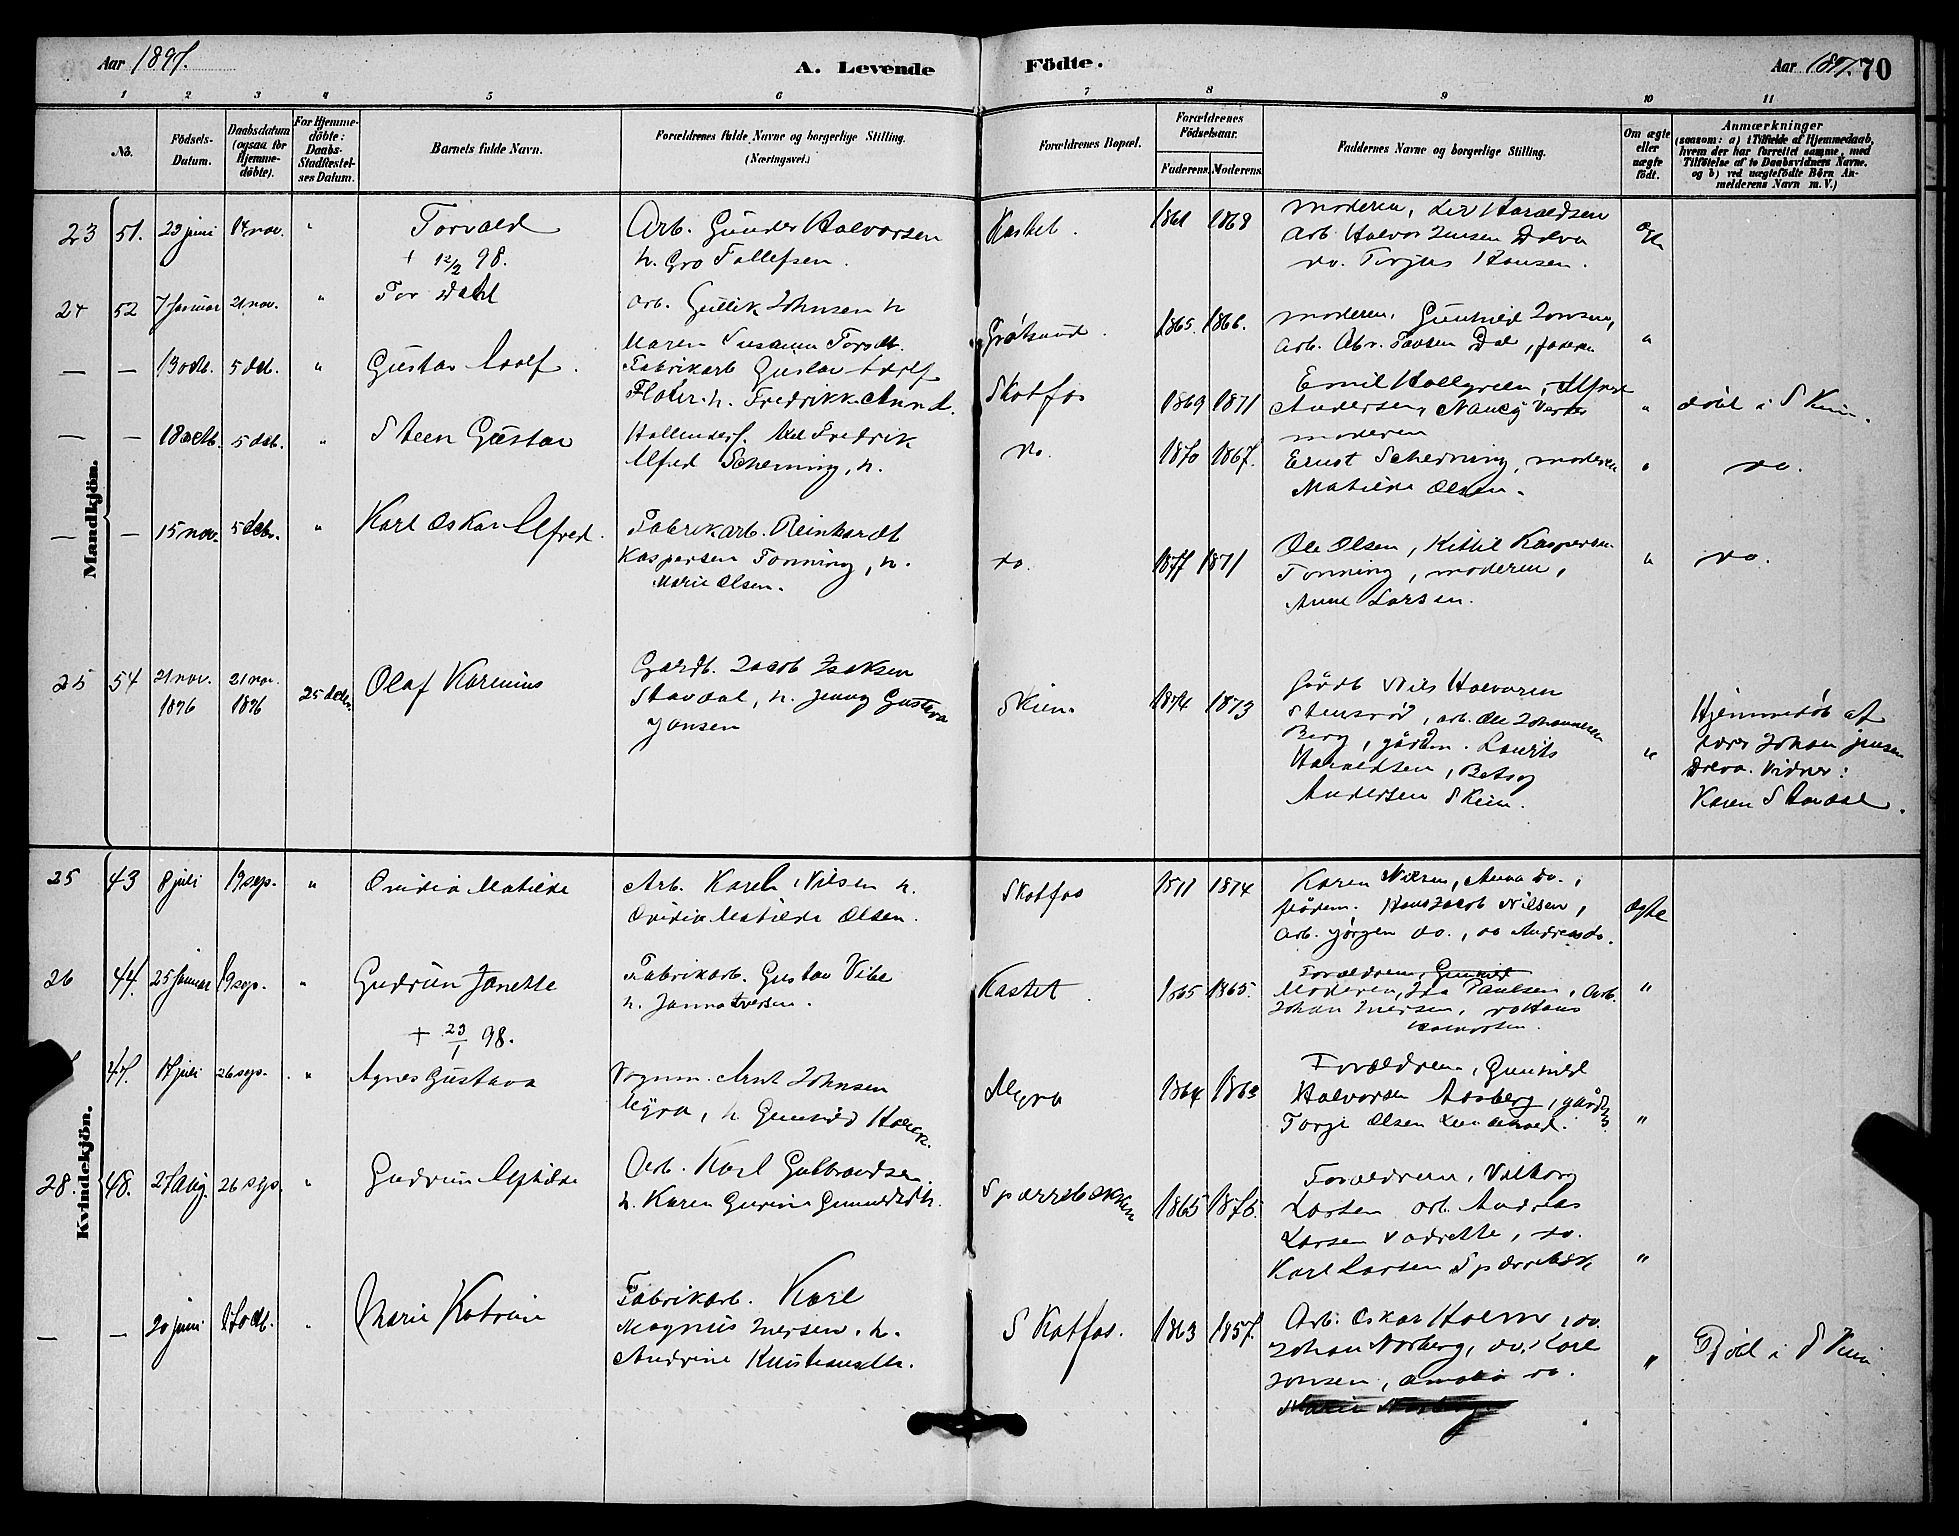 Aar 1897.
A. Levende
Födte.
Aar 1897. 70
1 2 3 4 5 6 7 8 9 10 11
No.
Födsels-
Datum.
Daabsdatum
(ogsaa for
Hjemme-
döbte).
For Hjemme-
döbte:
Daabs-
Stadfæstel-
ses Datum.
Barnets fulde Navn.
Forældrenes fulde Navne og borgerlige Stilling.
(Næringsvei.)
Forældrenes Bopæl.
Forældrenes
Födselsaar.
Faderens. Moderens.
Faddernes Navne og borgerlige Stilling.
Om ægte
eller
uægte
födt.
Anmærkninger
(saasom: a) i Tilfælde af Hjemmedaab,
hvem der har forrettet samme, med
Tilföielse af to Daabsvidners Navne.
og b) ved uægtefödte Börn An-
melderens Navn m. V.)
Mandkjön.
23 51. 23 juni 14 nov. "
Torvald
+ 12/2 98.
Arb. Gunder Halvorsen
h. Gro Tollefsen.
Kastet.
1861 1868
moderen, Haraldsen
Arb. Halvor Jensen Dolva
do. Terjus Hansen.
24 52 7 Januar 21 nov. "
Tor Dahl
Arb. Gullik Johnsen h
Maren Susanne Torsdt.
Grøtsund.
1865. 1866.
moderen, Gunhild Jonsen,
Arb. Abr. Dal, faderen
"
— — 13 octb. 5 deb. "
Gustav Adolf.
Fabrikarb Gustav Adolf
h. Fredrikke And.
Skotfos
1869 1871
Emil Hallgreen, Alfred
Andersen, Nancy
moderen
"
döbt i Skien.
— — 18 octb. 5 deb. "
Steen Gustav
Fredrik
Alfred Scherning, h.
do.
1870 1867.
Ernst Scherning, moderen
Matilde Olsen.
"
do.
— — 15 nov. 5 debr. "
Karl Oskar Alfred.
Fabrikarb. Reinhardt
Kaspersen Tonning, h.
Marie Olsen.
do.
1877 1871
Ole Olsen, Kittil Kaspersen
Tonning, moderen,
Anne Larsen.
"
do.
25 54 21 nov. 1896 21 nov. 1896 25 debr.
Olaf Karenius
Gardb. Jacob Isaksen
Stavdal, h. Jenny Gustava
Jonsen
Skien.
1874 1873
Gårdb Nils Halvorsen
Stensrød, arb. Ole Johannesen
Berg, gårdm. Laurits
Haraldsen, Betsy
Andersen Skien.
"
Hjemmedöb af
Johan Jensen
Dolva. Vidner:
Karen Stavdal.
Kvindekjön.
25 43 8 juli 19 sep. "
Ovidia Matilde
Arb. Karel Nilsen h.
Ovidia Matilde Olsen.
Skotfos
1871 1874
Karen Nilsen, Anna do.,
Hans Jacob Nilsen,
Arb. Jørgen do., do Andreas do.
Ægte
26 44. 25 Januar 19 sep. "
Gudrun Janette
+ 23/1 98.
Fabrikarb. Gustav Vibe
h. Janna Iversen.
Kastet.
1865 1865.
Forældrene, Gunhild
Moderen, Ida Paulsen, Arb.
Johan Iversen, do Hans
Halvorsen.
"
47. 17 juli 26 sep. "
Agnes Gustava
Arnt Johnsen
Myra, h Gunhild
Myra
1864 1863
Forældrene, Gunhild
Halvorsen Aasberg, gårdb
Torge Olsen
"
28 48. 27 aug. 26 sep. "
Gudrun Mathilde
Arb. Karl Gulbrandsen.
h. Karen Gurine
Sparrebækken
1865 1875.
Forældrene, Vilborg
Larsen arb. Andreas
Larsen Vadrette, do.
Karl Larsen Sparrebæk,
"
— — 20 juni 17 octb. "
Marie Katrine
Fabrikarb. Karl
Magnus Iversen. h.
Andrine Kristiansdtr.
Skotfos.
1863 1857.
Arb. Oskar Holm, do.
Johan Norberg, do. Karl
Jonsen, Amalia do.
"
Döbt i Skien